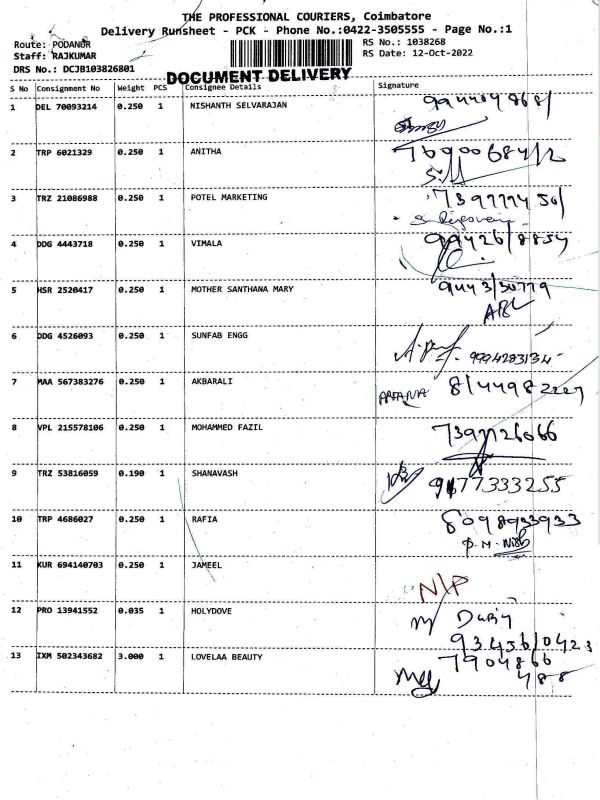 THE PROFESSIONAL COURIERS, Coimbatore
Delivery Runsheet - PCK - Phone No.:0422-3505555 - Page No.:1
Route: PODANUR
RS No.: 1038268
Staff: RAJKUMAR
RS Date: 12-Oct-2022
DRS No.: DCJB103826801
DOCUMENT DELIVERY
S No Consignment No Weight PCS Consignee Details Signature
1 DEL 70093214 0.250 1 NISHANTH SELVARAJAN
2 TRP 6021329 0.250 1 ANITHA
3 TRZ 21086988 0.250 1 POTEL MARKETING
4 DDG 4443718 0.250 1 VIMALA
5 HSR 2520417 0.250 1 MOTHER SANTHANA MARY
6 DDG 4526093 0.250 1 SUNFAB ENGG
7 MAA 567383276 0.250 1 AKBARALI
8 VPL 215578106 0.250 1 MOHAMMED FAZIL
7397726066
9 TRZ 53816059 0.190 1 SHANAVASH
9177333255
10 TRP 4686027 0.250 1 RAFIA
8098933933
11 KUR 694140703 0.250 1 JAMEEL
N/P
12 PRO 13941552 0.035 1 HOLYDOVE
9345610423
13 IXM 502343682 3.000 1 LOVELAA BEAUTY
7904866
488